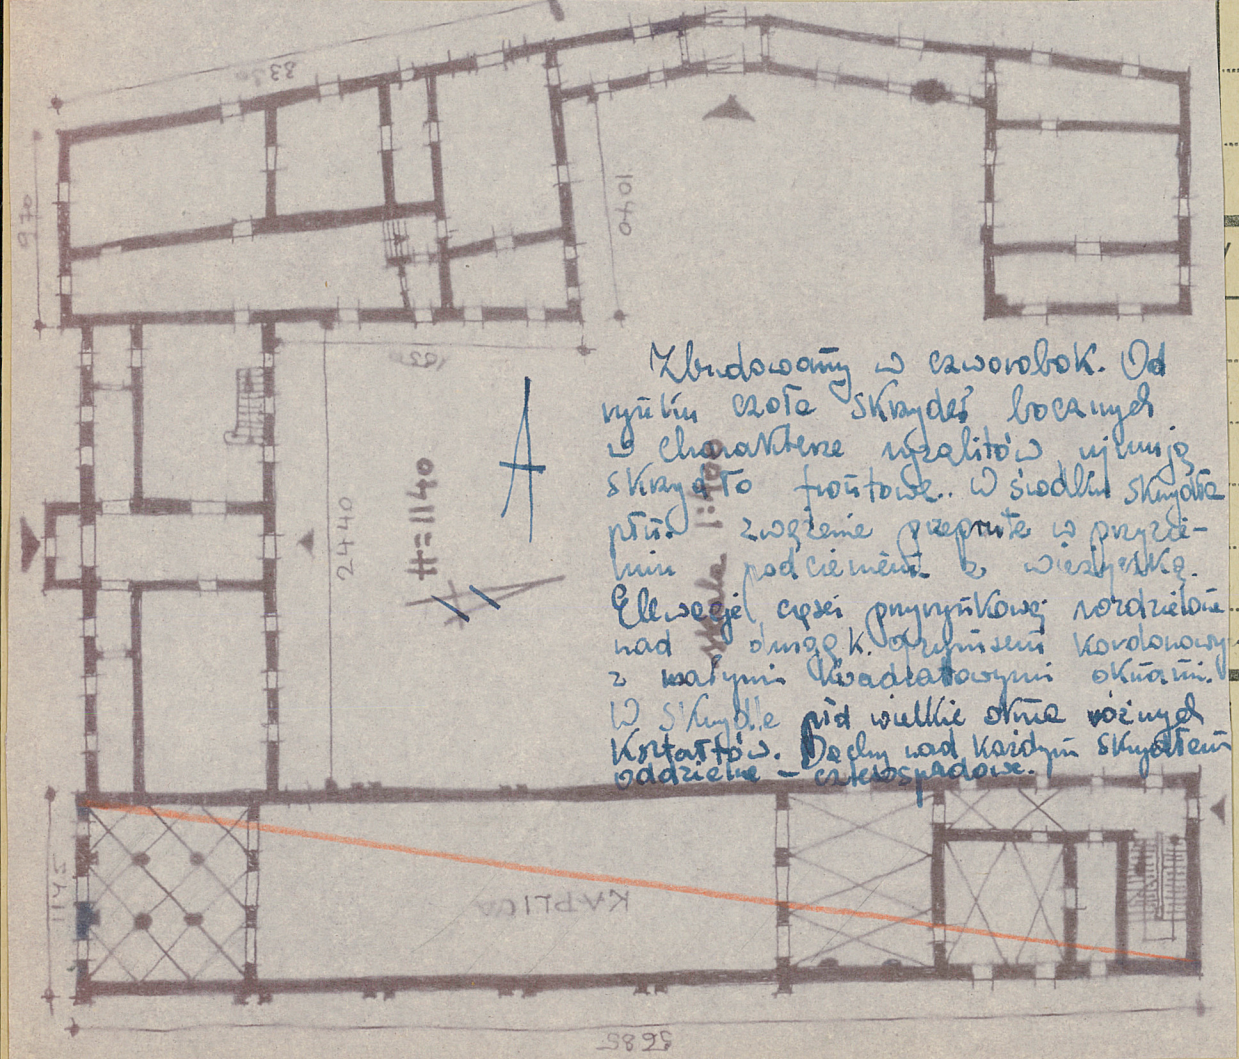 33
970
1040
Zbudowany w czworobok. Od
rynku czoła skrzydeł bocznych
w charakterze ryzalitów ujmują
skrzydło frontowe. W środku skrzydła
płn. zwężenie przeprute w przyzie-
miu podcieniem z wieżyczką.
Elewacje części przyrynkowej rozdzielone
nad drugą k. gzymsem kordonowym
z małymi kwadratowymi oknami.
W skrzydle płd wielkie okna różnych
kształtów. Dachy nad każdym skrzydłem
oddzielne - czterospadowe.
skala 1:400
H=1140
2440
1145
KAPLICA
5685